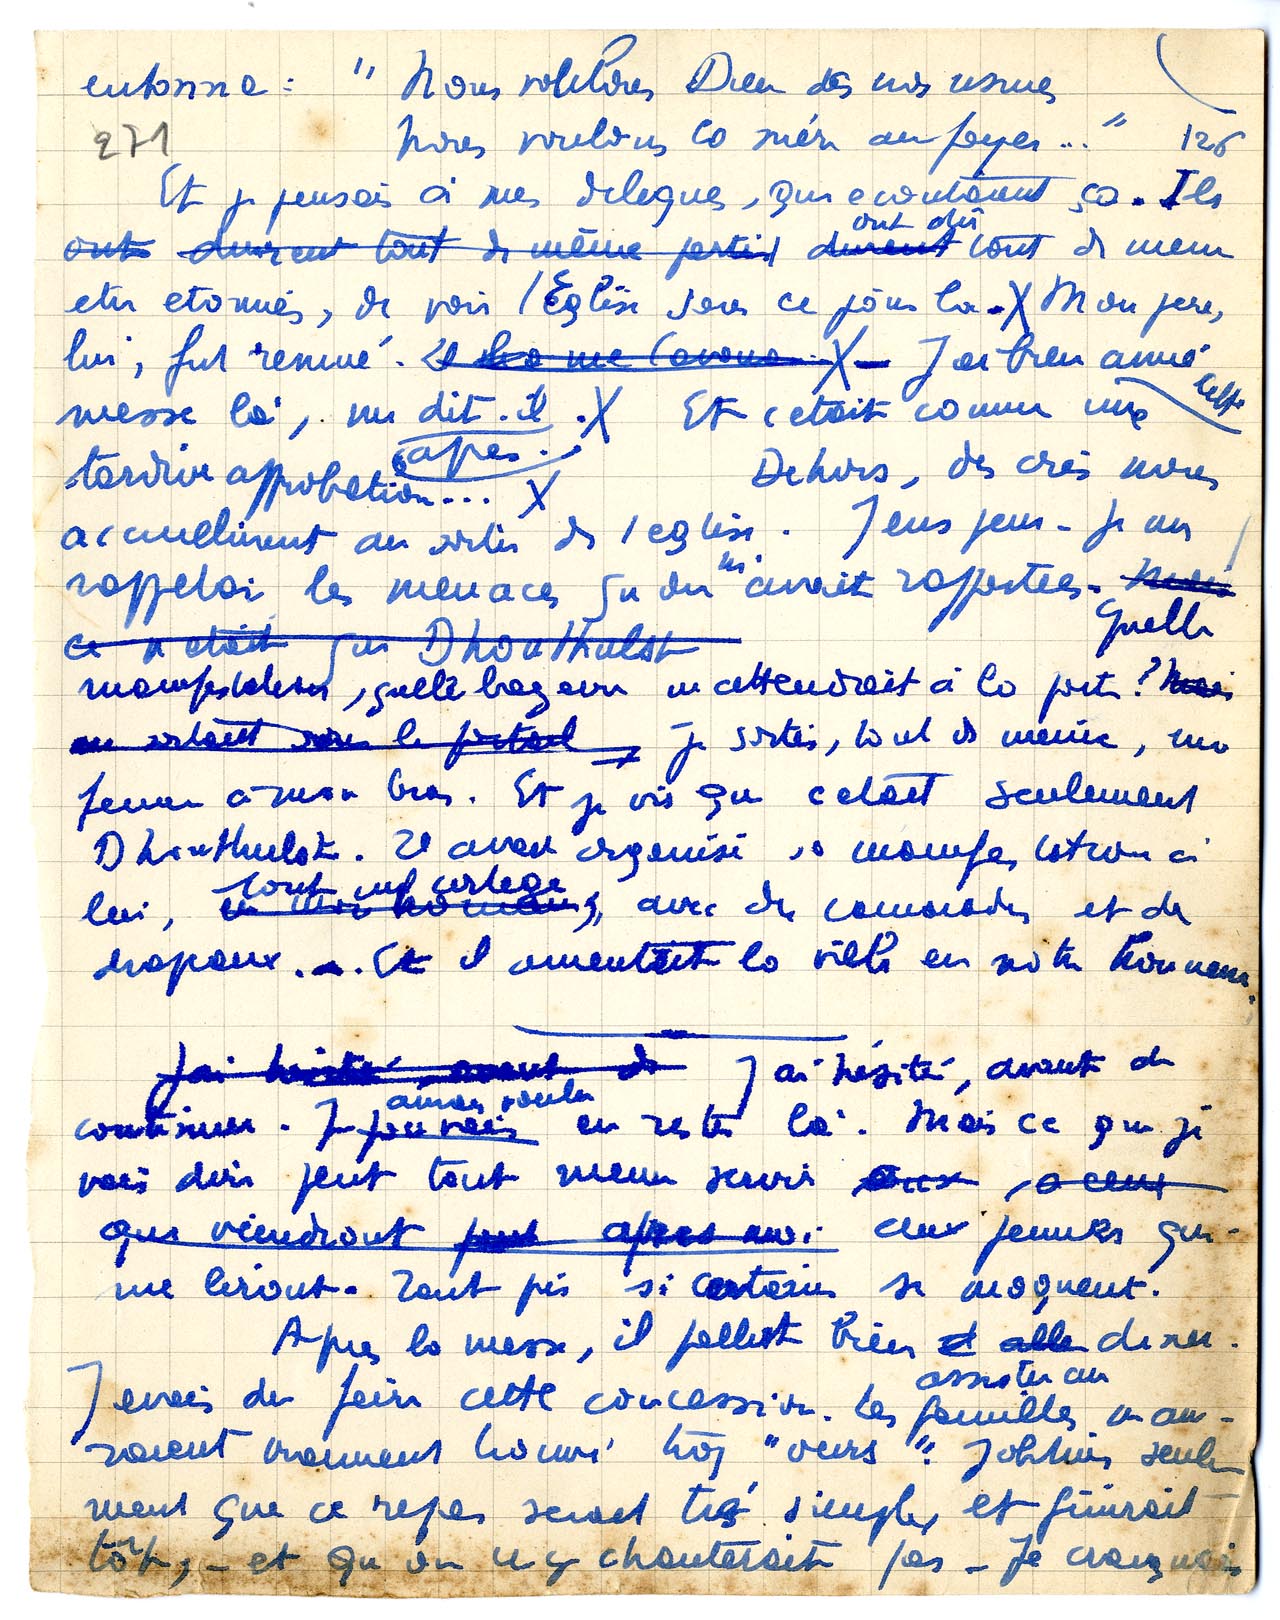 entonna : " Nous voulons Dieu ds nos usines
271 Nous voulons sa mère au foyer... " 126
Et je pensais à mes délégués, qui écoutaient ça. Ils
ont durent tout de même partir ont dû durent tout de meme
etre etonnés, de voir l'Eglise sous ce jour là. X Mon père,
lui, fut remué. Il me l'avoua. X - J'ai bien aimé cette
messe là, me dit-il après. X Et c'était comme une
tardive approbation... X Dehors, des cris nous
accueillirent au sortir de l'eglise. J'eus peur - je me
rappelai les menaces qu'on m'avait rapportées. Mais
ce n'était que Dhouthulst Quelle
manifestation, quelle bagarre m'attendrait à la porte ? Mais
en sortant sous le portail je sortis, tout de même, ma
femme à mon bras. Et je vis que c'etait seulement
Dhouthulst. Il avait organisé sa manifestation à
lui, tout un cortège, avec des camarades et des
drapeaux... Et il ameutait la ville en notre honneur.
J'ai hésité, avant de J'ai hésité, avant de
continuer. Je pouvais aurais voulu en rester là. Mais ce que je
vais dire peut tout meme servir aux à ceux
qui viendront après moi aux jeunes qui
me liront. Tant pis si certains se moquent.
Après la messe, il fallait bien aller diner.
J'avais du faire cette concession. Les familles assister au m'au-
raient vraiment trouvé trop "ours". J'obtins seule
ment que ce repas serait très simple, et finirait
tôt, - et qu'on n'y chanterait pas - Je craignais